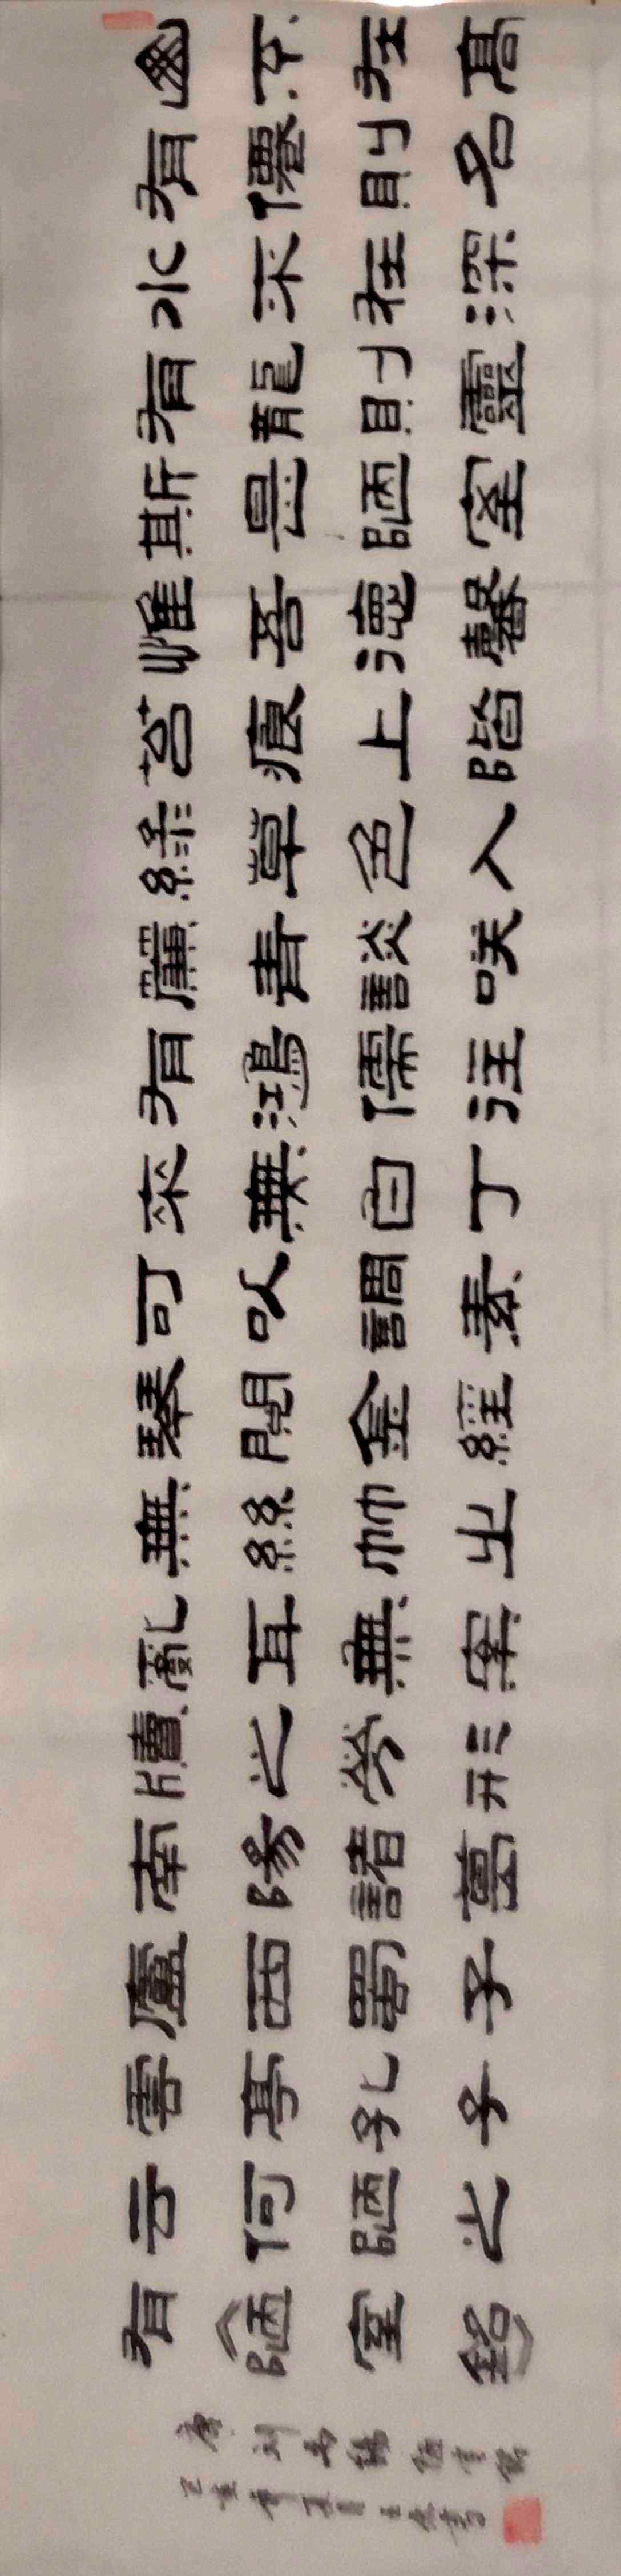 山不在高
有僊則名
水不在深
有龍則靈
斯是陋室
惟吾德馨
苔痕上階
綠草色入
簾青談咲
有鴻儒往
來無白丁
可以調素
琴閱金經
無絲竹之
亂耳無案
牘之勞形
南陽諸葛
廬西蜀子
雲亭孔子
云何陋之
有《陋室銘》
唐刘禹錫陋室銘
己亥年